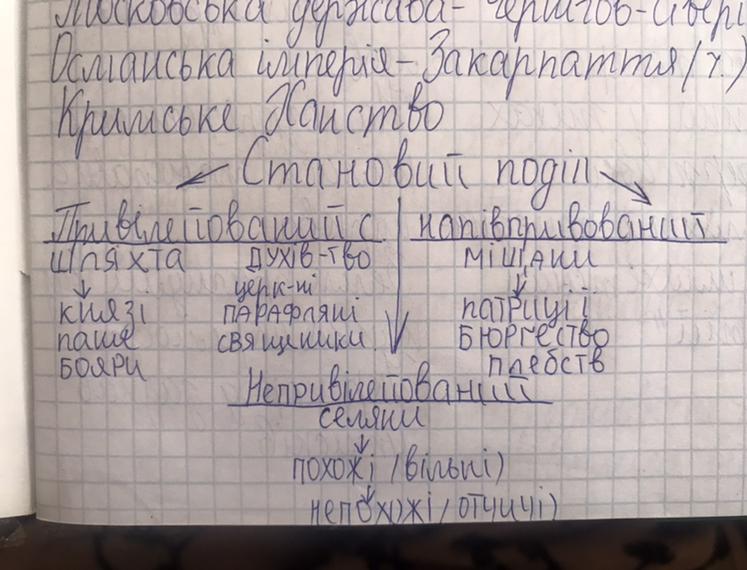 Московська держава - Чернігов-Сівер
Османська імперія - Закарпаття (ч.)
Кримське Ханство
Становий поділ
Привілейований с напівпривований
шляхта духів-тво міщани
церк-ні
князі парафляні патриції
паше священики бюргество
бояри плебств
Непривілейований
селяни
похожі (вільні)
непохожі (отчичі)